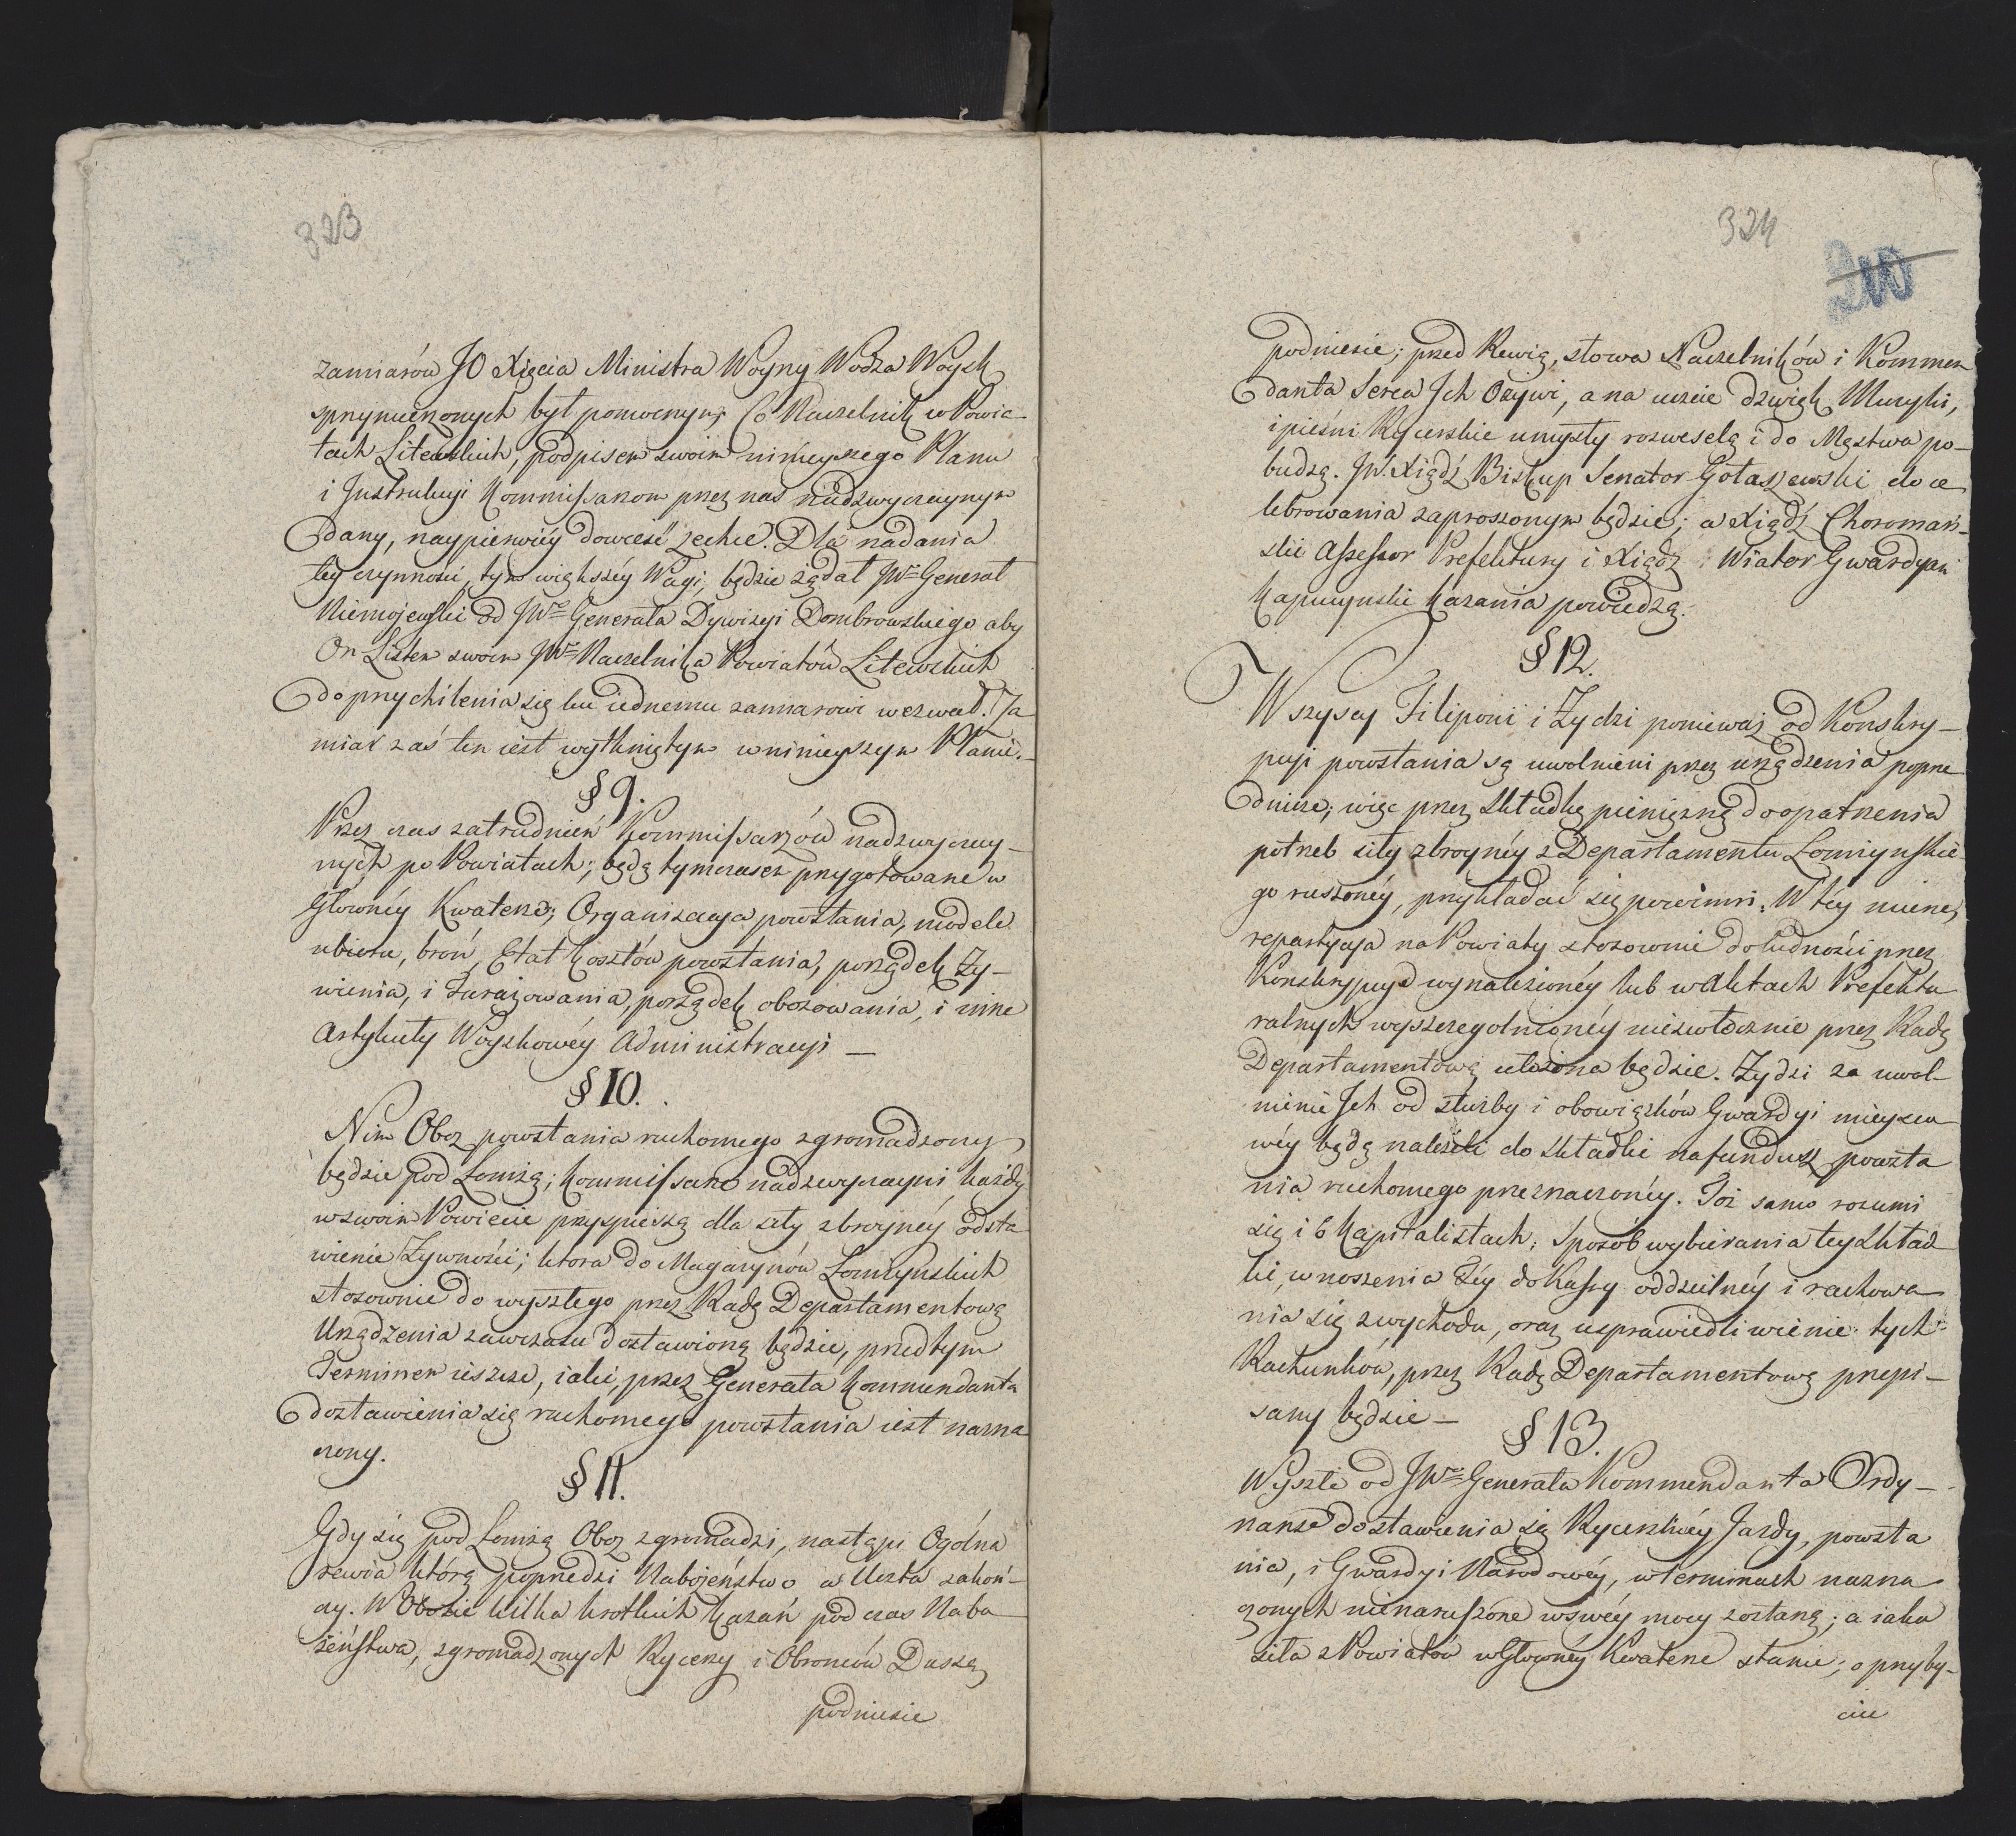 323
zamiarów JO Xięcia Ministra Woyny Wodza Woysk
sprzymierzonych był pomocnym; Co Naczelnik w Powia-
tach Litewskich, podpisem swoim ninieyszego Planu
i Instrukcyi Kommissarzom przez nas nadzwyczaynym
dany, naypierwiéy dowieść zechce. Dla nadania
tey czynności, tym większéy Wagi, będzie żądał JW. Generał
Niemojewski od JWo Generała Dywizyi Dombrowskiego aby
On Listem swoim JWo Naczelnika Powiatów Litewskich
do przychilenia się ku iednemu zamiarowi wezwał. Za
miar zaś ten iest wytkniętym w ninieyszym Planie.
§ 9.
Przez czas zatrudnień Kommissarzów nadzwyczay-
nych po Powiatach; będą tymczasem przygotowane w
Główney Kwaterze; Organizacya powstania, modele
ubioru, broń, Etat kosztów powstania, porządek ży-
wienia, i furażowania, porządek obozowania, i inne
Artykuły Woyskowéy Administracyi —
§ 10.
Nim Oboz powstania ruchomego zgromadzony
będzie pod Łomżą; Kommissarze nadzwyczayni każdy
w swoim Powiecie przyspieszą dla siły zbroynéy odsta
wienie Żywności; ktora do Magazynów Łomżynskich
stosownie do wyszłego przez Radę Departamentową
Urządzenia zawczasu dostawioną będzie, przed tym
Terminem ieszcze, iaki przez Generała Kommendanta
dostawienia się ruchomego powstania iest nazna
czony.
§ 11.
Gdy się pod Łomżą Oboz zgromadzi, nastąpi Ogólna
rewia którą poprzedzi Nabożeństwo a Uczta zakoń-
czy. W Obozie kilka krotkich kazań pod czas Nabo
żeństwa, zgromadzonych Rycerzy i Obroncow Duszę
podniesie
324
200
podniesie; przed Rewią, słowa Naczelników i Kommen
danta Serca Ich Ożywi, a na uczcie dzwięk Muzyki,
i pieśni Rycerskie umysły rozweselą i do Męstwa po-
budzą. JW. Xiądz Biskup Senator Gołaszewski do ce
lebrowania zaproszonym będzie; a Xiądz Choromań-
ski Assessor Prefektury i Xiądz Wiator Gwardyan
Kapucynski kazania powiedzą.
§ 12.
Wszyscy Filiponi i Żydzi ponieważ od Konskry-
pcyi powstania są uwolnieni przez urządzenia poprze
dnicze; więc przez składkę pieniężną do opatrzenia
potrzeb siły zbroynéy z Departamentu Łomżynskie
go ruszonéy, przykładać się powinni. W téy mierze,
repartycya na Powiaty stosownie do ludności przez
Konskrypcye wynalezionéy lub w aktach Prefektu
ralnych wyszczególnionéy niezwłocznie przez Radę
Departamentową ułożona będzie. Żydzi za uwol-
nienie Ich od służby i obowiązków Gwardyi mieysco
wéy będą należeli do składki na fundusz powsta
nia ruchomego przeznaczonéy. Toż samo rozumi
się i o Kapitalistach; Sposób wybierania tey skład
ki, wnoszenia Iéy do Kassy oddzielnéy i rachowa
nia się z wychodu, oraz usprawiedliwienie tych
Rachunków, przez Radę Departamentową przepi-
sany będzie —
§ 13.
Wyszłe od JWo Generała Kommendanta Ordy-
nanse dostawienia się Rycerskiéy Jazdy, powsta
nia, i Gwardyi Narodowéy, w terminach nazna
czonych nienaruszone w swéy mocy zostaną; a iaka
siła z Powiatów w Głownéy Kwaterze stanie; o przyby-
ciu